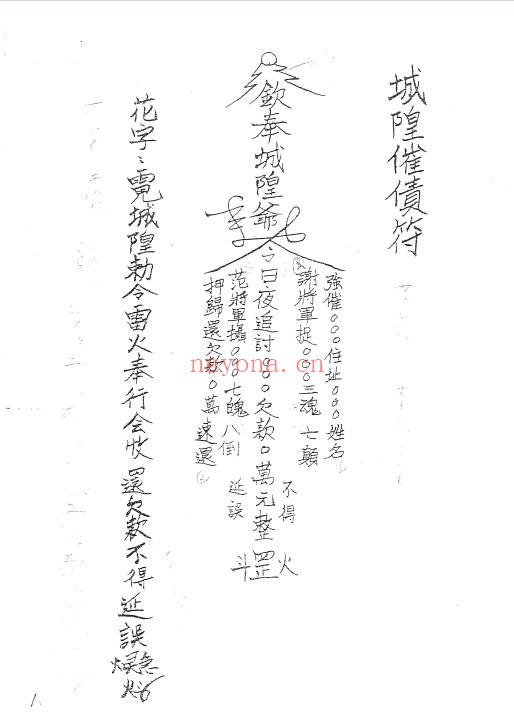 城隍催債符
強催○○○住址○○○姓名
謝將軍捉○○○三魂七顛
不得
欽奉城隍爺令日夜追討○○○欠款○萬元整
火罡斗
范將軍攝○○○七魄八倒
延誤
押歸還欠款○萬速還
花字:霓城隍勅令雷火奉行会收還欠款不得延誤
nayona.cn